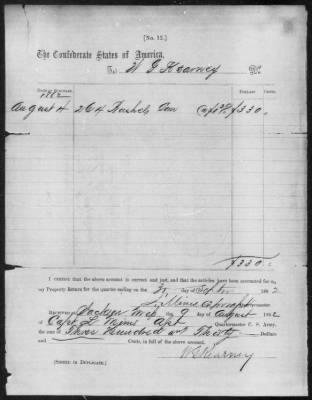 [No. 12.]
The Confederate States of America,
To W G Kearney Dr.
DATE OF PURCHASE. DOLLARS. CENTS.
1862
August 4 264 Bushels Corn $330
$330
I CERTIFY that the above account is correct and just, and that the articles have been accounted for on
my Property Return for the quarter ending on the 30 day of Sept 1862
L. Mims Capt
Quartermaster
RECEIVED at Jackson Miss the 9 day of August 1862
Capt. L Mims Quartermaster C. S. Army,
the sum of Three Hundred and Thirty Dollars
and Cents, in full of the above account.
W G Kearney
(SIGNED IN DUPLICATE.)